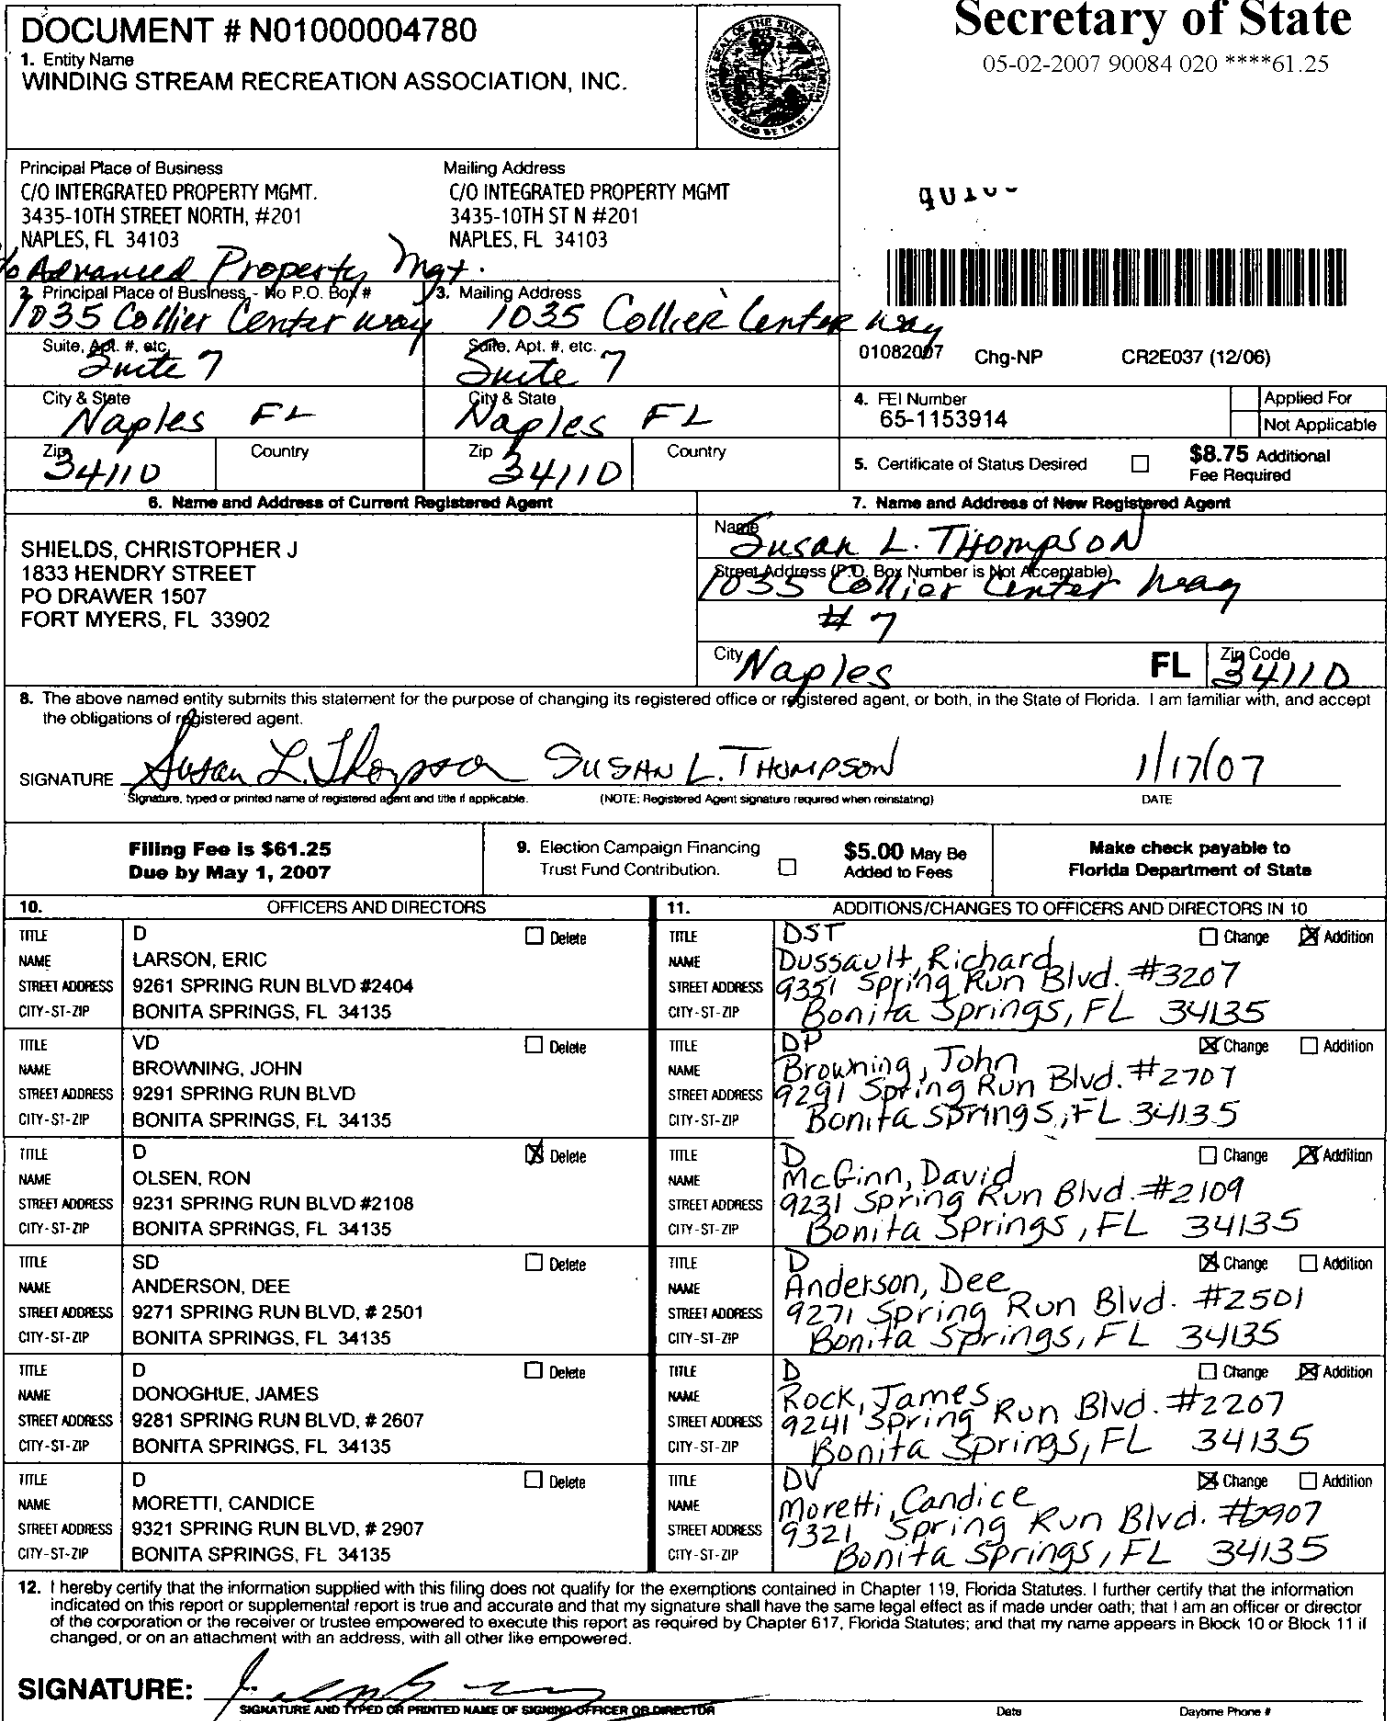 DOCUMENT # N01000004780
1. Entity Name
WINDING STREAM RECREATION ASSOCIATION, INC.
Secretary of State
05-02-2007 90084 020 ****61.25
Principal Place of Business
C/O INTERGRATED PROPERTY MGMT.
3435-10TH STREET NORTH, #201
NAPLES, FL 34103
Mailing Address
C/O INTEGRATED PROPERTY MGMT
3435-10TH ST N #201
NAPLES, FL 34103
Advanced Property Mgt.
2. Principal Place of Business - No P.O. Box #
1035 Collier Center Way
3. Mailing Address
1035 Collier Center Way
Suite, Apt. #, etc.
Suite 7
Suite, Apt. #, etc.
Suite 7
City & State
Naples FL
City & State
Naples FL
Zip
34110
Country
Zip
34110
Country
01082007 Chg-NP CR2E037 (12/06)
4. FEI Number
65-1153914
Applied For
Not Applicable
5. Certificate of Status Desired
$8.75 Additional
Fee Required
6. Name and Address of Current Registered Agent
SHIELDS, CHRISTOPHER J
1833 HENDRY STREET
PO DRAWER 1507
FORT MYERS, FL 33902
7. Name and Address of New Registered Agent
Name
Susan L. Thompson
Street Address (P.O. Box Number is Not Acceptable)
1035 Collier Center Way
# 7
City
Naples
FL
Zip Code
34110
8. The above named entity submits this statement for the purpose of changing its registered office or registered agent, or both, in the State of Florida. I am familiar with, and accept
the obligations of registered agent.
SIGNATURE Susan L. Thompson SUSAN L. THOMPSON 1/17/07
Signature, typed or printed name of registered agent and title if applicable. (NOTE: Registered Agent signature required when reinstating) DATE
Filing Fee is $61.25
Due by May 1, 2007
9. Election Campaign Financing
Trust Fund Contribution.
$5.00 May Be
Added to Fees
Make check payable to
Florida Department of State
10. OFFICERS AND DIRECTORS
11. ADDITIONS/CHANGES TO OFFICERS AND DIRECTORS IN 10
TITLE D Delete
NAME LARSON, ERIC
STREET ADDRESS 9261 SPRING RUN BLVD #2404
CITY-ST-ZIP BONITA SPRINGS, FL 34135
TITLE DST Change Addition
NAME Dussault, Richard
STREET ADDRESS 9351 Spring Run Blvd. #3207
CITY-ST-ZIP Bonita Springs, FL 34135
TITLE VD Delete
NAME BROWNING, JOHN
STREET ADDRESS 9291 SPRING RUN BLVD
CITY-ST-ZIP BONITA SPRINGS, FL 34135
TITLE DP Change Addition
NAME Browning, John
STREET ADDRESS 9291 Spring Run Blvd. #2707
CITY-ST-ZIP Bonita Springs, FL 34135
TITLE D Delete
NAME OLSEN, RON
STREET ADDRESS 9231 SPRING RUN BLVD #2108
CITY-ST-ZIP BONITA SPRINGS, FL 34135
TITLE D Change Addition
NAME McGinn, David
STREET ADDRESS 9231 Spring Run Blvd. #2109
CITY-ST-ZIP Bonita Springs, FL 34135
TITLE SD Delete
NAME ANDERSON, DEE
STREET ADDRESS 9271 SPRING RUN BLVD, # 2501
CITY-ST-ZIP BONITA SPRINGS, FL 34135
TITLE D Change Addition
NAME Anderson, Dee
STREET ADDRESS 9271 Spring Run Blvd. #2501
CITY-ST-ZIP Bonita Springs, FL 34135
TITLE D Delete
NAME DONOGHUE, JAMES
STREET ADDRESS 9281 SPRING RUN BLVD, # 2607
CITY-ST-ZIP BONITA SPRINGS, FL 34135
TITLE D Change Addition
NAME Rock, James
STREET ADDRESS 9241 Spring Run Blvd. #2207
CITY-ST-ZIP Bonita Springs, FL 34135
TITLE D Delete
NAME MORETTI, CANDICE
STREET ADDRESS 9321 SPRING RUN BLVD, # 2907
CITY-ST-ZIP BONITA SPRINGS, FL 34135
TITLE DV Change Addition
NAME Moretti, Candice
STREET ADDRESS 9321 Spring Run Blvd. #2907
CITY-ST-ZIP Bonita Springs, FL 34135
12. I hereby certify that the information supplied with this filing does not qualify for the exemptions contained in Chapter 119, Florida Statutes. I further certify that the information
indicated on this report or supplemental report is true and accurate and that my signature shall have the same legal effect as if made under oath; that I am an officer or director
of the corporation or the receiver or trustee empowered to execute this report as required by Chapter 617, Florida Statutes; and that my name appears in Block 10 or Block 11 if
changed, or on an attachment with an address, with all other like empowered.
SIGNATURE:
SIGNATURE AND TYPED OR PRINTED NAME OF SIGNING OFFICER OR DIRECTOR Date Daytime Phone #